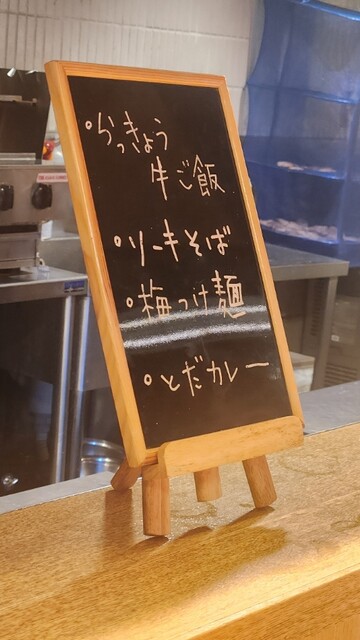 ○らっきょう
牛ご飯
○リーキそば
○梅つけ麺
○とだカレー